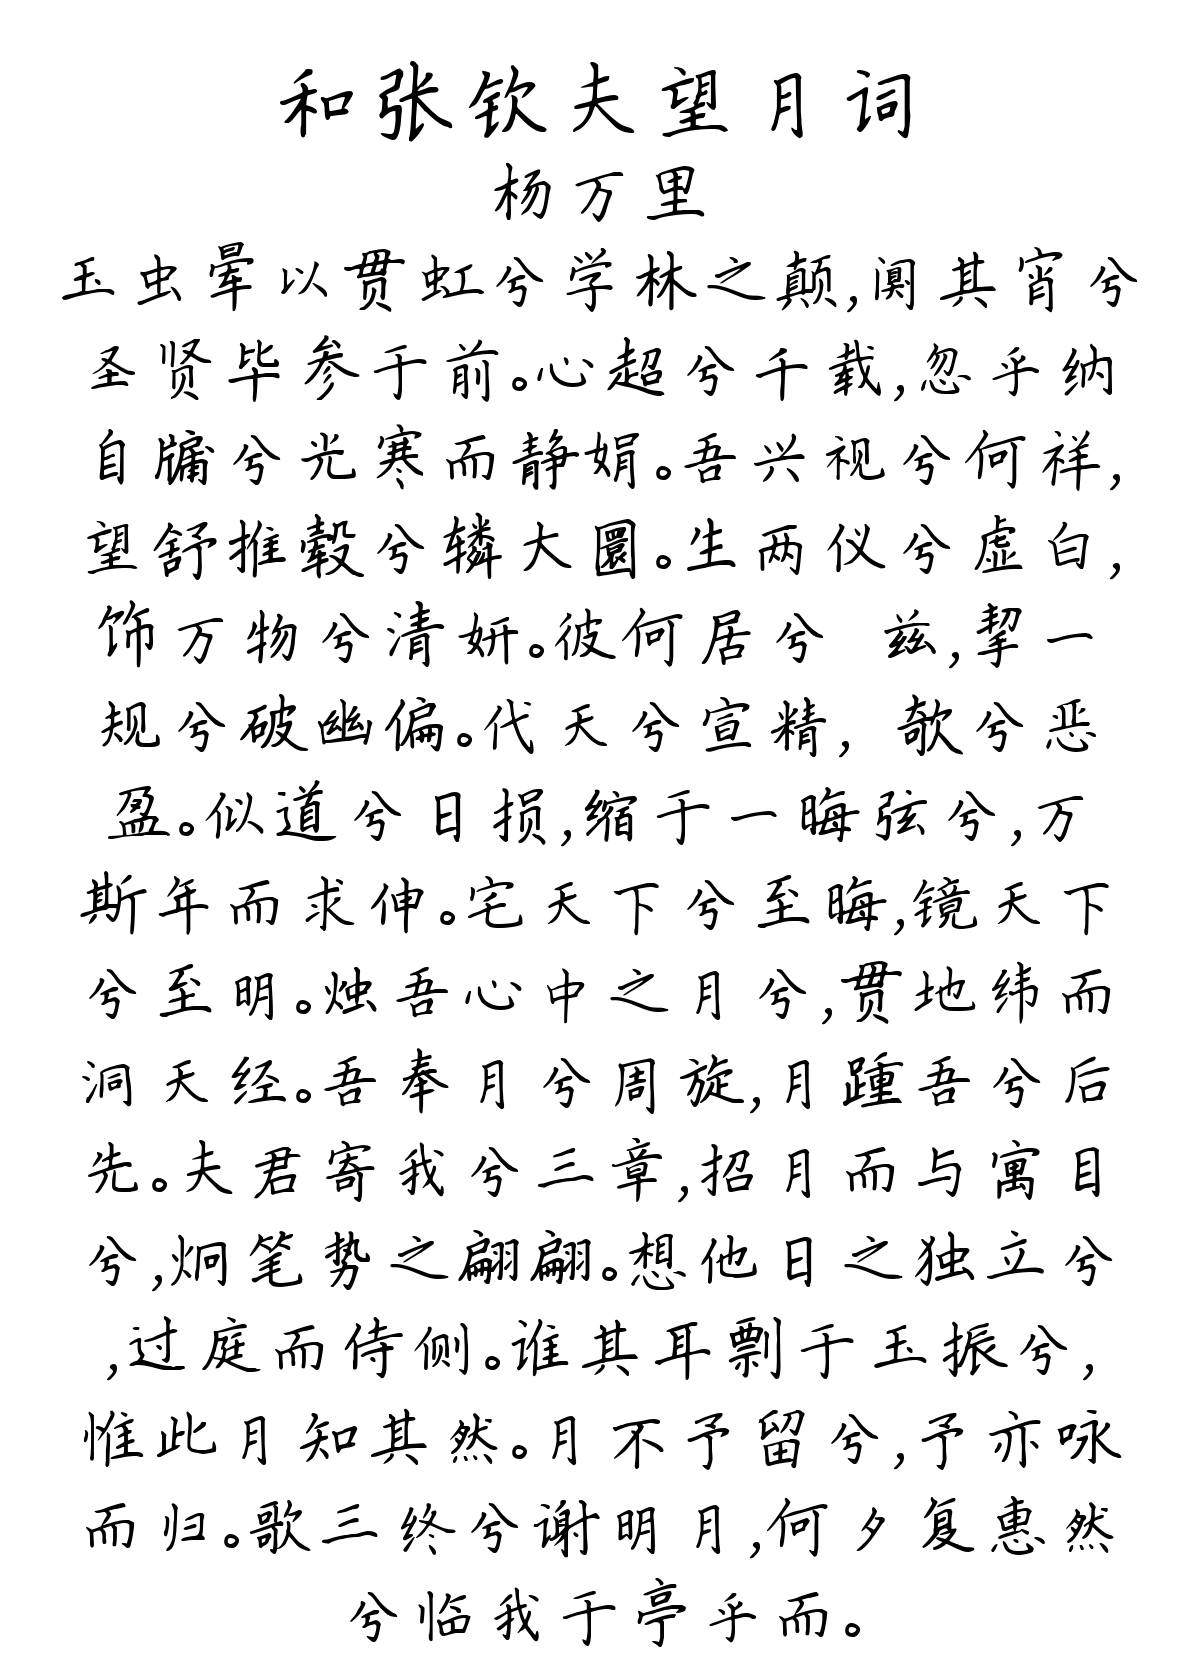 和张钦夫望月词
杨万里
玉虫晕以贯虹兮学林之颠,阒其宵兮
圣贤毕参于前。心超兮千载,忽乎纳
自牖兮光寒而静娟。吾兴视兮何祥,
望舒推毂兮辚大圜。生两仪兮虚白,
饰万物兮清妍。彼何居兮 兹,挈一
规兮破幽偏。代天兮宣精, 欹兮恶
盈。似道兮日损,缩于一晦弦兮,万
斯年而求伸。宅天下兮至晦,镜天下
兮至明。烛吾心中之月兮,贯地纬而
洞天经。吾奉月兮周旋,月踵吾兮后
先。夫君寄我兮三章,招月而与寓目
兮,炯笔势之翩翩。想他日之独立兮
,过庭而侍侧。谁其耳剽于玉振兮,
惟此月知其然。月不予留兮,予亦咏
而归。歌三终兮谢明月,何夕复惠然
兮临我于亭乎而。